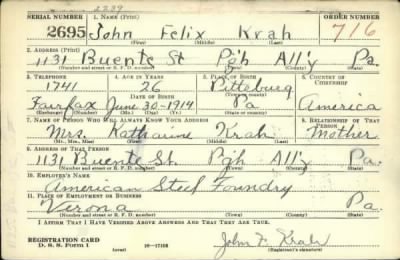 2239
SERIAL NUMBER 1. NAME (Print) ORDER NUMBER
2695 John Felix Krah 716
(First) (Middle) (Last)
2. ADDRESS (Print)
1131 Buente St Pgh All'y Pa.
(Number and street or R. F. D. number) (Town) (County) (State)
3. TELEPHONE 4. AGE IN YEARS 5. PLACE OF BIRTH 6. COUNTRY OF CITIZENSHIP
1741 26 Pittsburg
DATE OF BIRTH (Town or county)
Fairfax June 30-1914 Pa America
(Exchange) (Number) (Mo.) (Day) (Yr.) (State or country)
7. NAME OF PERSON WHO WILL ALWAYS KNOW YOUR ADDRESS 8. RELATIONSHIP OF THAT PERSON
Mrs. Katharine Krah Mother
(Mr., Mrs., Miss) (First) (Middle) (Last)
9. ADDRESS OF THAT PERSON
1131 Buente St. Pgh All'y Pa.
(Number and street or R. F. D. number) (Town) (County) (State)
10. EMPLOYER'S NAME
American Steel Foundry
11. PLACE OF EMPLOYMENT OR BUSINESS
Verona Pa.
(Number and street or R. F. D. number) (Town) (County) (State)
I AFFIRM THAT I HAVE VERIFIED ABOVE ANSWERS AND THAT THEY ARE TRUE.
REGISTRATION CARD
D. S. S. Form 1 16—17105 John F. Krah
(Registrant's signature)